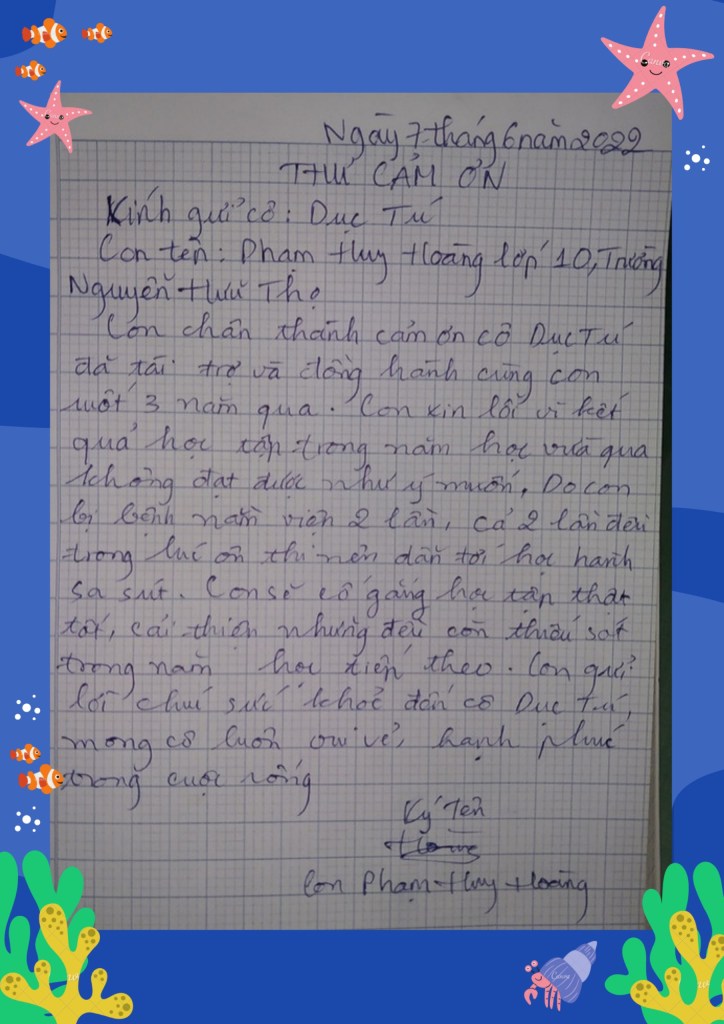 Ngày 7 tháng 6 năm 2022
THƯ CẢM ƠN
Kính gửi cô: Dục Tú
Con tên: Phạm Huy Hoàng lớp 10, Trường
Nguyễn Hữu Thọ
Con chân thành cảm ơn cô Dục Tú
đã tài trợ và đồng hành cùng con
suốt 3 năm qua. Con xin lỗi vì kết
quả học tập trong năm học vừa qua
không đạt được như ý muốn. Do con
bị bệnh nằm viện 2 lần, cả 2 lần đều
trong lúc ôn thi nên dẫn tới học hành
sa sút. Con sẽ cố gắng học tập thật
tốt, cải thiện những đều còn thiếu sót
trong năm học tiếp theo. Con gửi
lời chúc sức khoẻ đến cô Dục Tú,
mong cô luôn vui vẻ, hạnh phúc
trong cuộc sống
Ký tên
Hoàng
Con Phạm Huy Hoàng